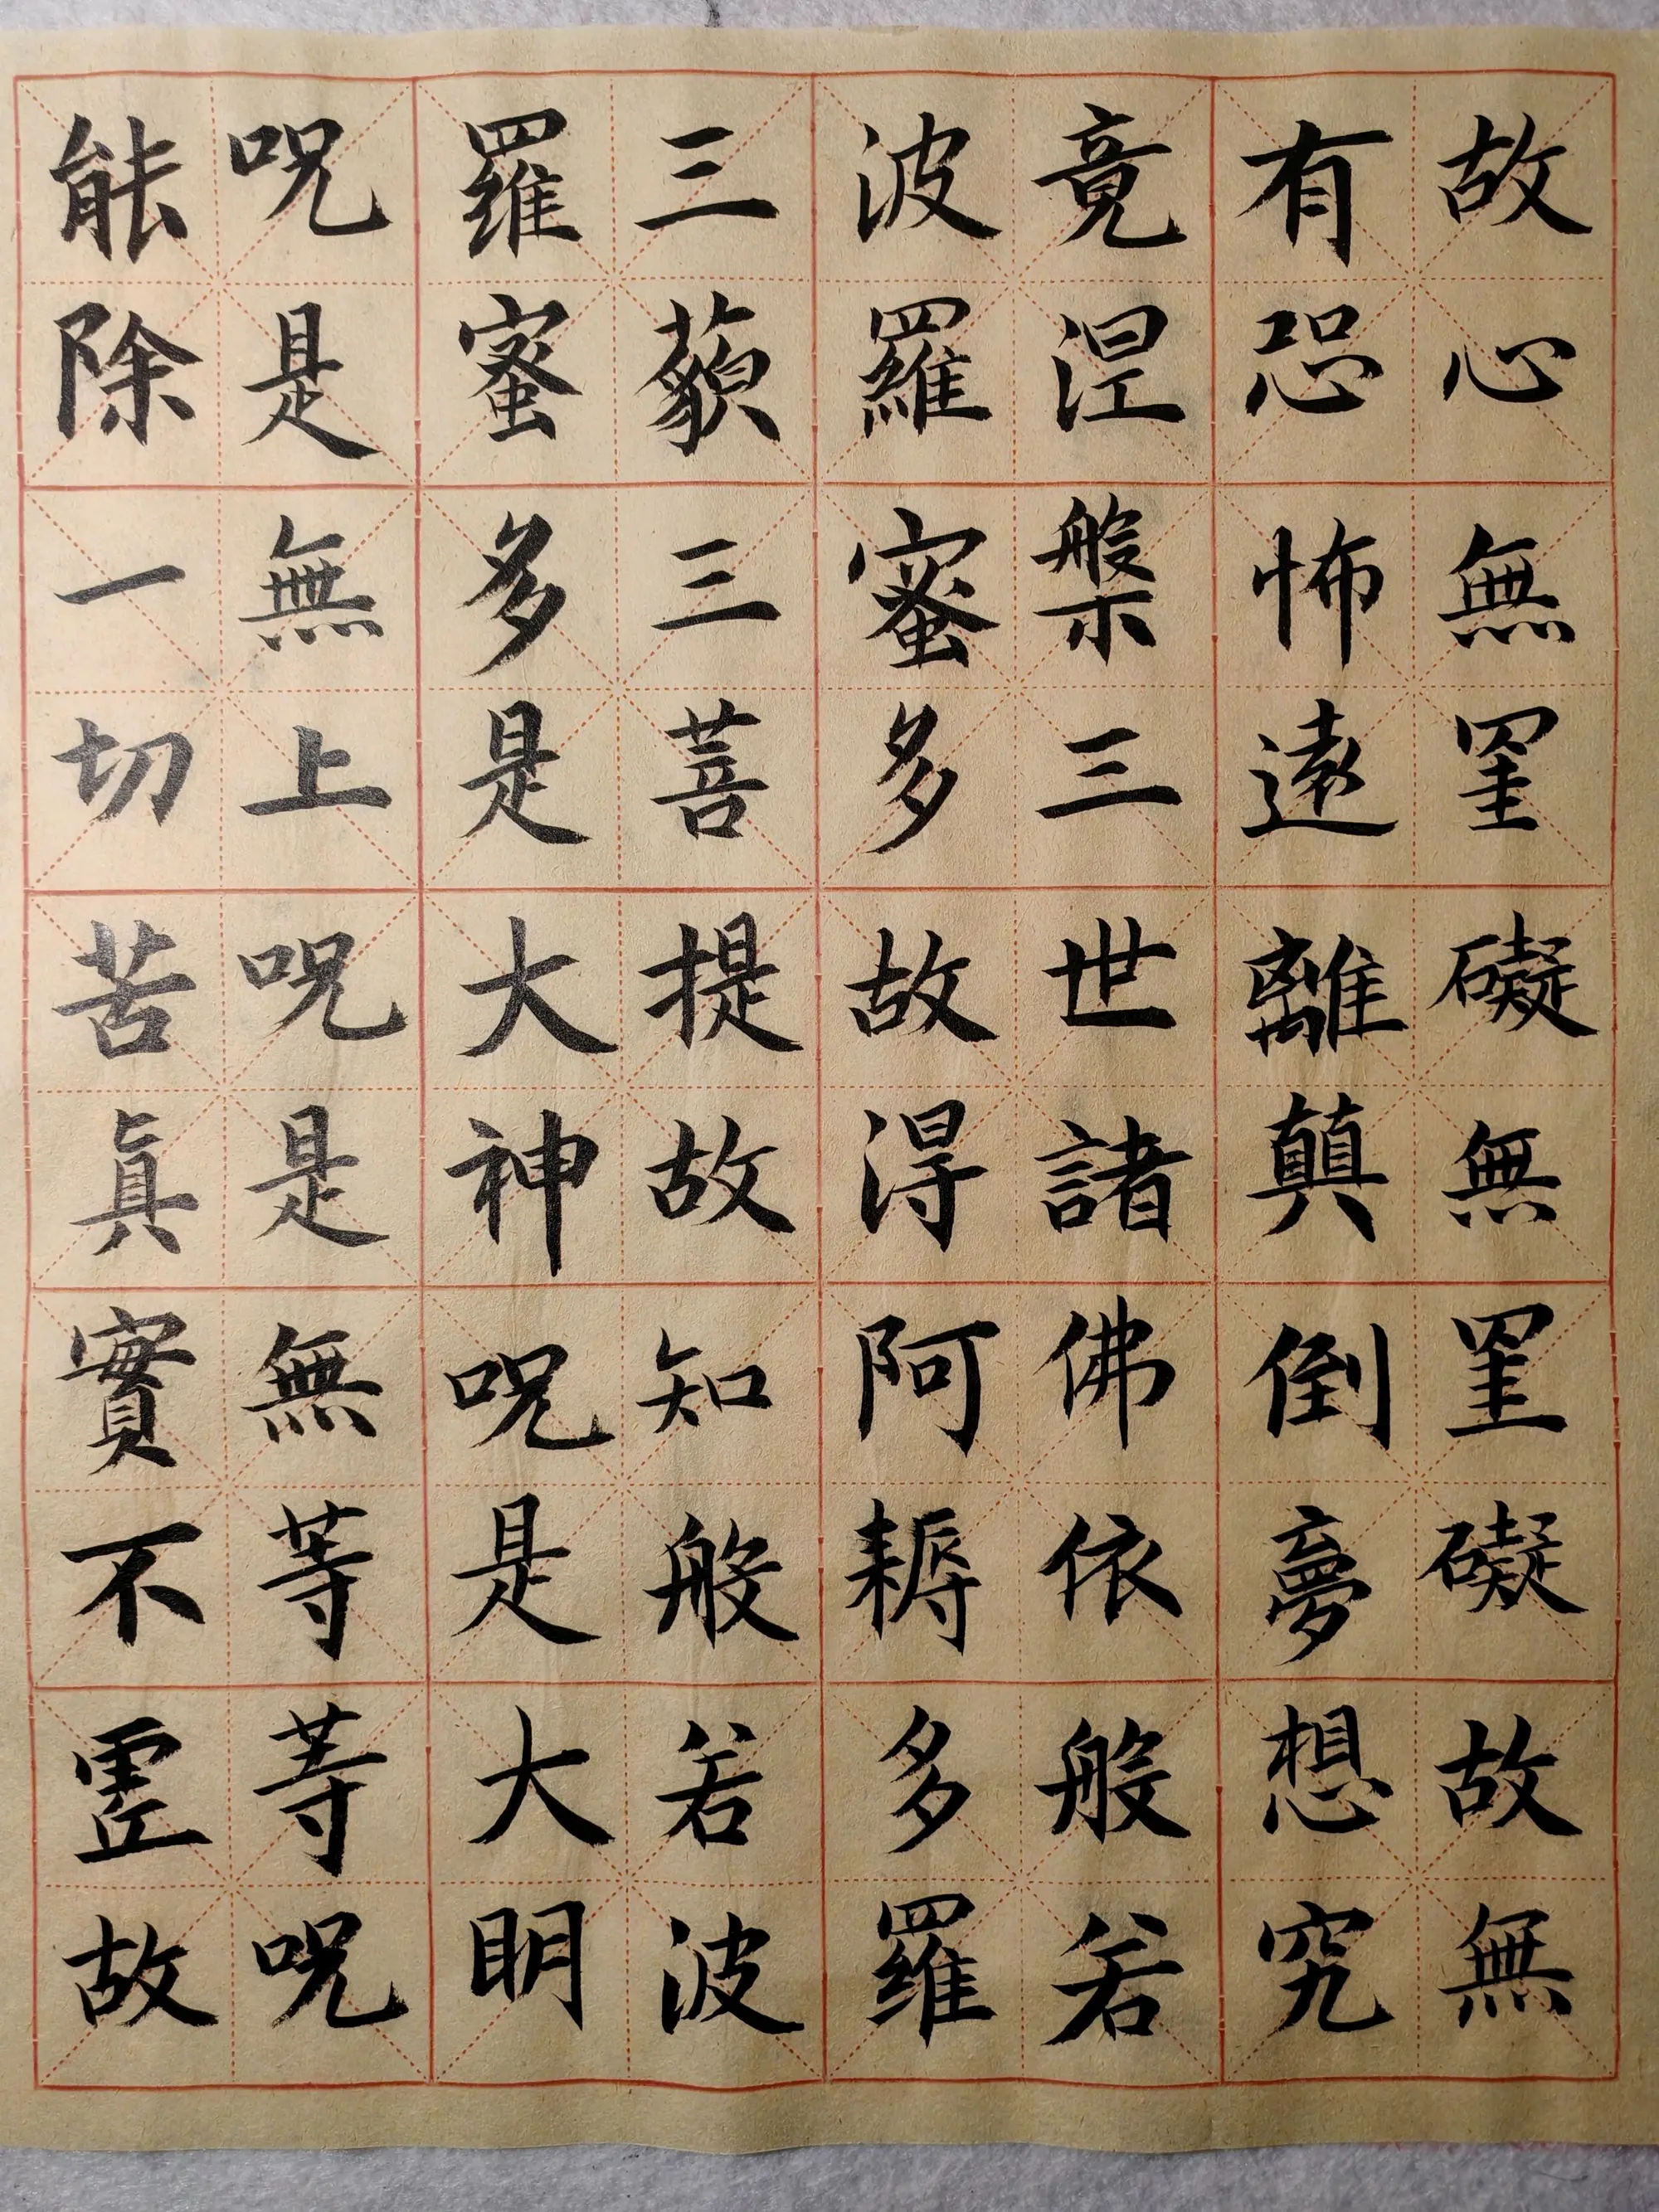 故心無罣礙無罣礙故無
有恐怖遠離顛倒夢想究
竟涅槃三世諸佛依般若
波羅蜜多故得阿耨多羅
三藐三菩提故知般若波
羅蜜多是大神咒是大明
咒是無上咒是無等等咒
能除一切苦真實不虛故